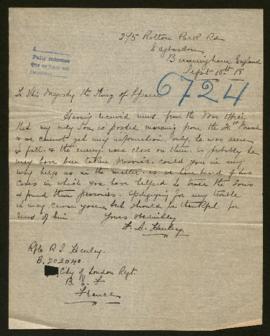 295 Rotton Park Rd
Edgbaston
Birmingham, England
Sept 18th 18
6724
To His Majesty the King of Spain
Having received news from the War Office
that my only Son, is posted missing from the
as I cannot get any information, only he was seen
to fall & the enemy was close on them, so probably he
may have been taken Prisoner. could you in any
way help us in the matter, as we have heard of
cases in which you have helped to trace the Sons
& found them prisoners. Apologising for any trouble
I may cause you, but should be thankful for
news of him Yours Obediently
Rfn
B. 202040
City of London Regt.
B. E. F
France